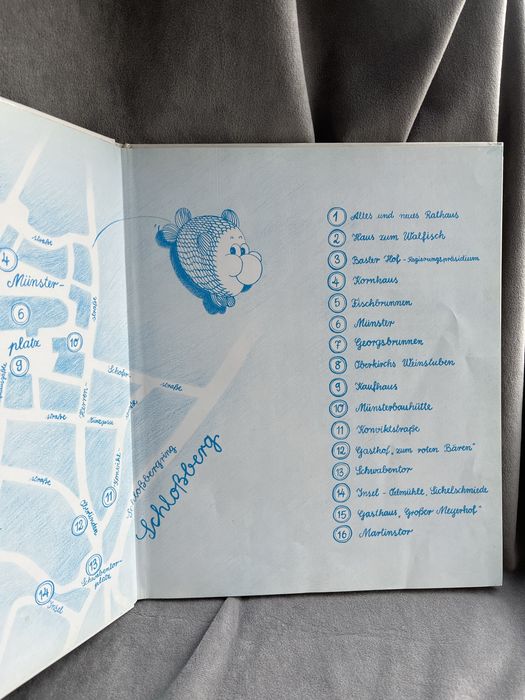 straße
4
Münster-
6
platz
9
10
straße
Herren-
straße
straße
straße
Konvikt-
11
12
Oberlinden
13
Schwabentor-
platz
14
Insel
straße
Schloßbergring
Schloßberg
1 Altes und neues Rathaus
2 Haus zum Walfisch
3 Basler Hof - Regierungspräsidium
4 Kornhaus
5 Fischbrunnen
6 Münster
7 Georgsbrunnen
8 Oberkirchs Weinstuben
9 Kaufhaus
10 Münsterbauhütte
11 Konviktstraße
12 Gasthof „zum roten Bären"
13 Schwabentor
14 Insel - Oelmühle, Sichelschmiede
15 Gasthaus „Großer Meyerhof"
16 Martinstor